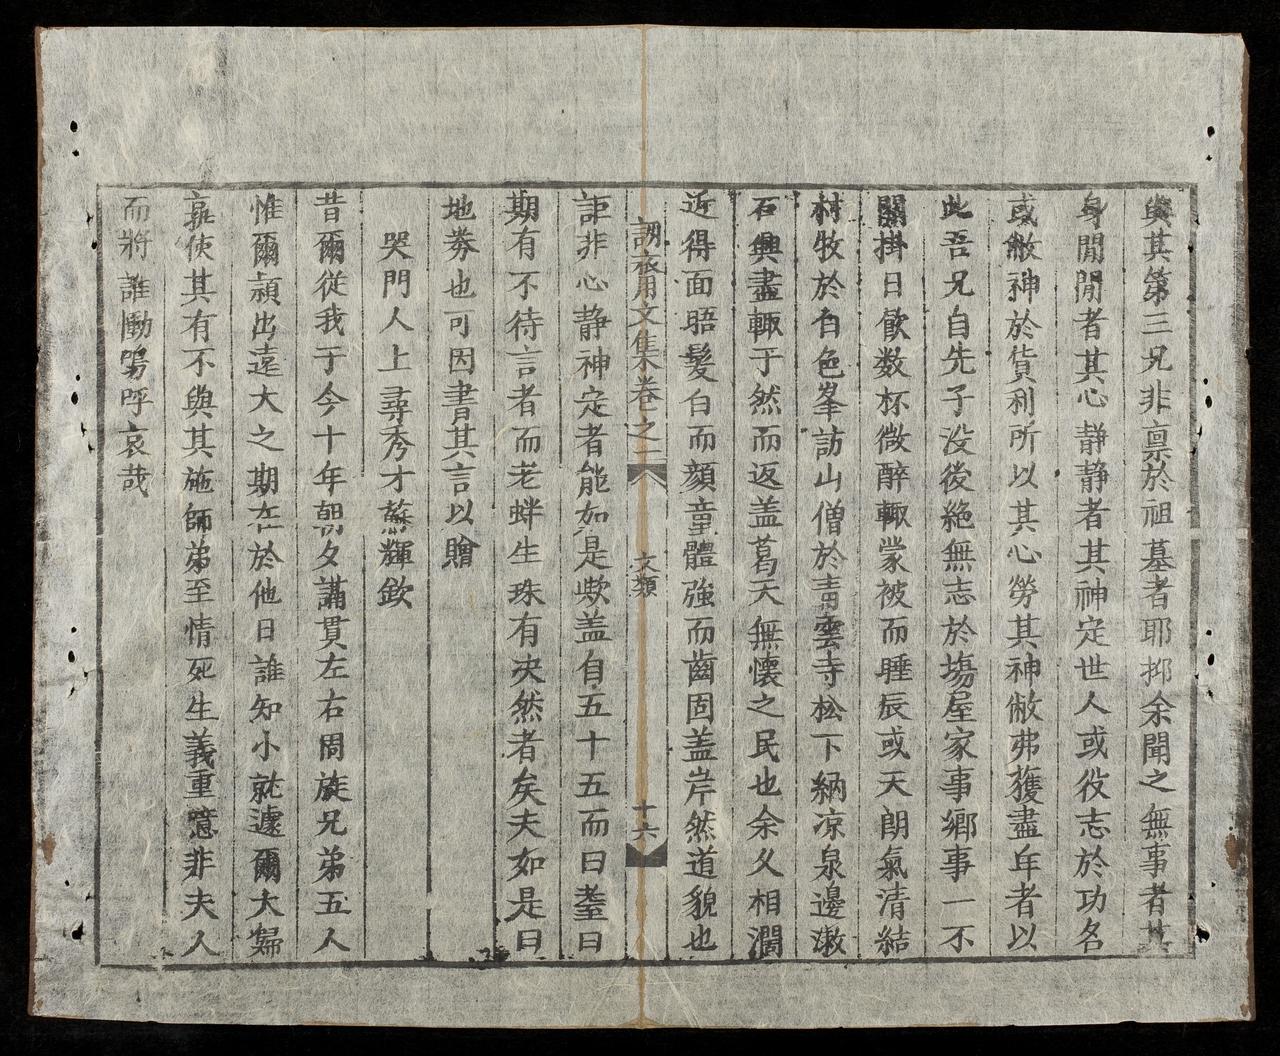 與其第三兄非稟於祖墓者耶抑余聞之無事者其
身閒閒者其心靜靜者其神定世人或役志於功名
或敝神於貨利所以其心勞其神敝弗獲盡年者以
此吾兄自先子没後絶無志於塲屋家事鄉事一不
關掛日飲数杯微醉輙蒙被而睡辰或天朗氣清結
村牧於白色峯訪山僧於青雲寺松下納凉泉邊漱
石興盡輙于然而返盖葛天無懷之民也余久相濶
近得面晤髮白而顔童體強而齒固盖岸然道貌也
訓齋用文集卷之二 文類 十六
詎非心靜神定者能如是歟盖自五十五而曰耋曰
期有不待言者而老蚌生珠有决然者矣夫如是曰
地劵也可因書其言以贈
哭門人上尋秀才蘇輝欽
昔爾從我于今十年朝夕講貫左右周旋兄弟五人
惟爾頴出遠大之期在於他日誰知小就遽爾大歸
孰使其有不與其施師弟至情死生義重噫非夫人
而將誰慟嗚呼哀哉